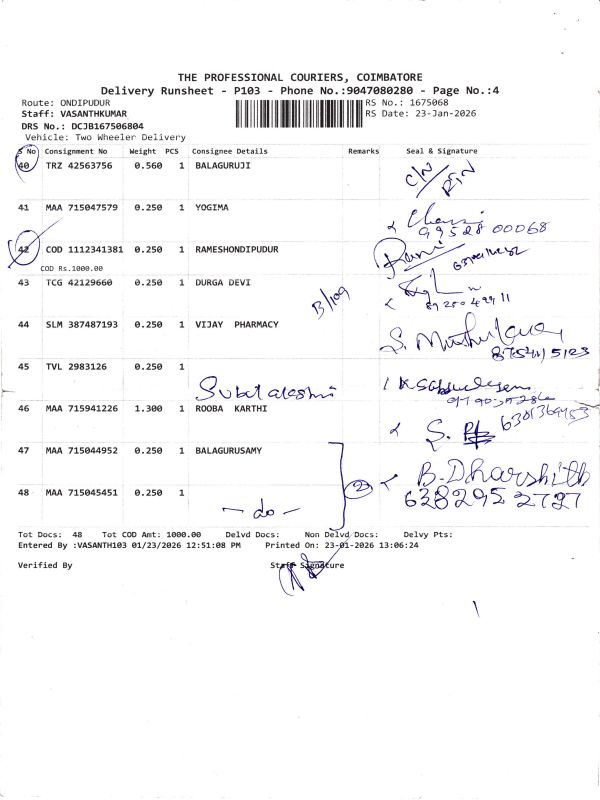 THE PROFESSIONAL COURIERS, COIMBATORE
Delivery Runsheet - P103 - Phone No.:9047080280 - Page No.:4
Route: ONDIPUDUR RS No.: 1675068
Staff: VASANTHKUMAR RS Date: 23-Jan-2026
DRS No.: DCJB167506804
Vehicle: Two Wheeler Delivery
S No Consignment No Weight PCS Consignee Details Remarks Seal & Signature
40 TRZ 42563756 0.560 1 BALAGURUJI
41 MAA 715047579 0.250 1 YOGIMA
99528 00068
42 COD 1112341381 0.250 1 RAMESHONDIPUDUR
COD Rs.1000.00
43 TCG 42129660 0.250 1 DURGA DEVI
B/109
44 SLM 387487193 0.250 1 VIJAY PHARMACY
45 TVL 2983126 0.250 1
46 MAA 715941226 1.300 1 ROOBA KARTHI
47 MAA 715044952 0.250 1 BALAGURUSAMY
2 B. Dharshith
48 MAA 715045451 0.250 1 - do - 6382952727
Tot Docs: 48 Tot COD Amt: 1000.00 Delvd Docs: Non Delvd Docs: Delvy Pts:
Entered By :VASANTH103 01/23/2026 12:51:08 PM Printed On: 23-01-2026 13:06:24
Verified By Staff Signature